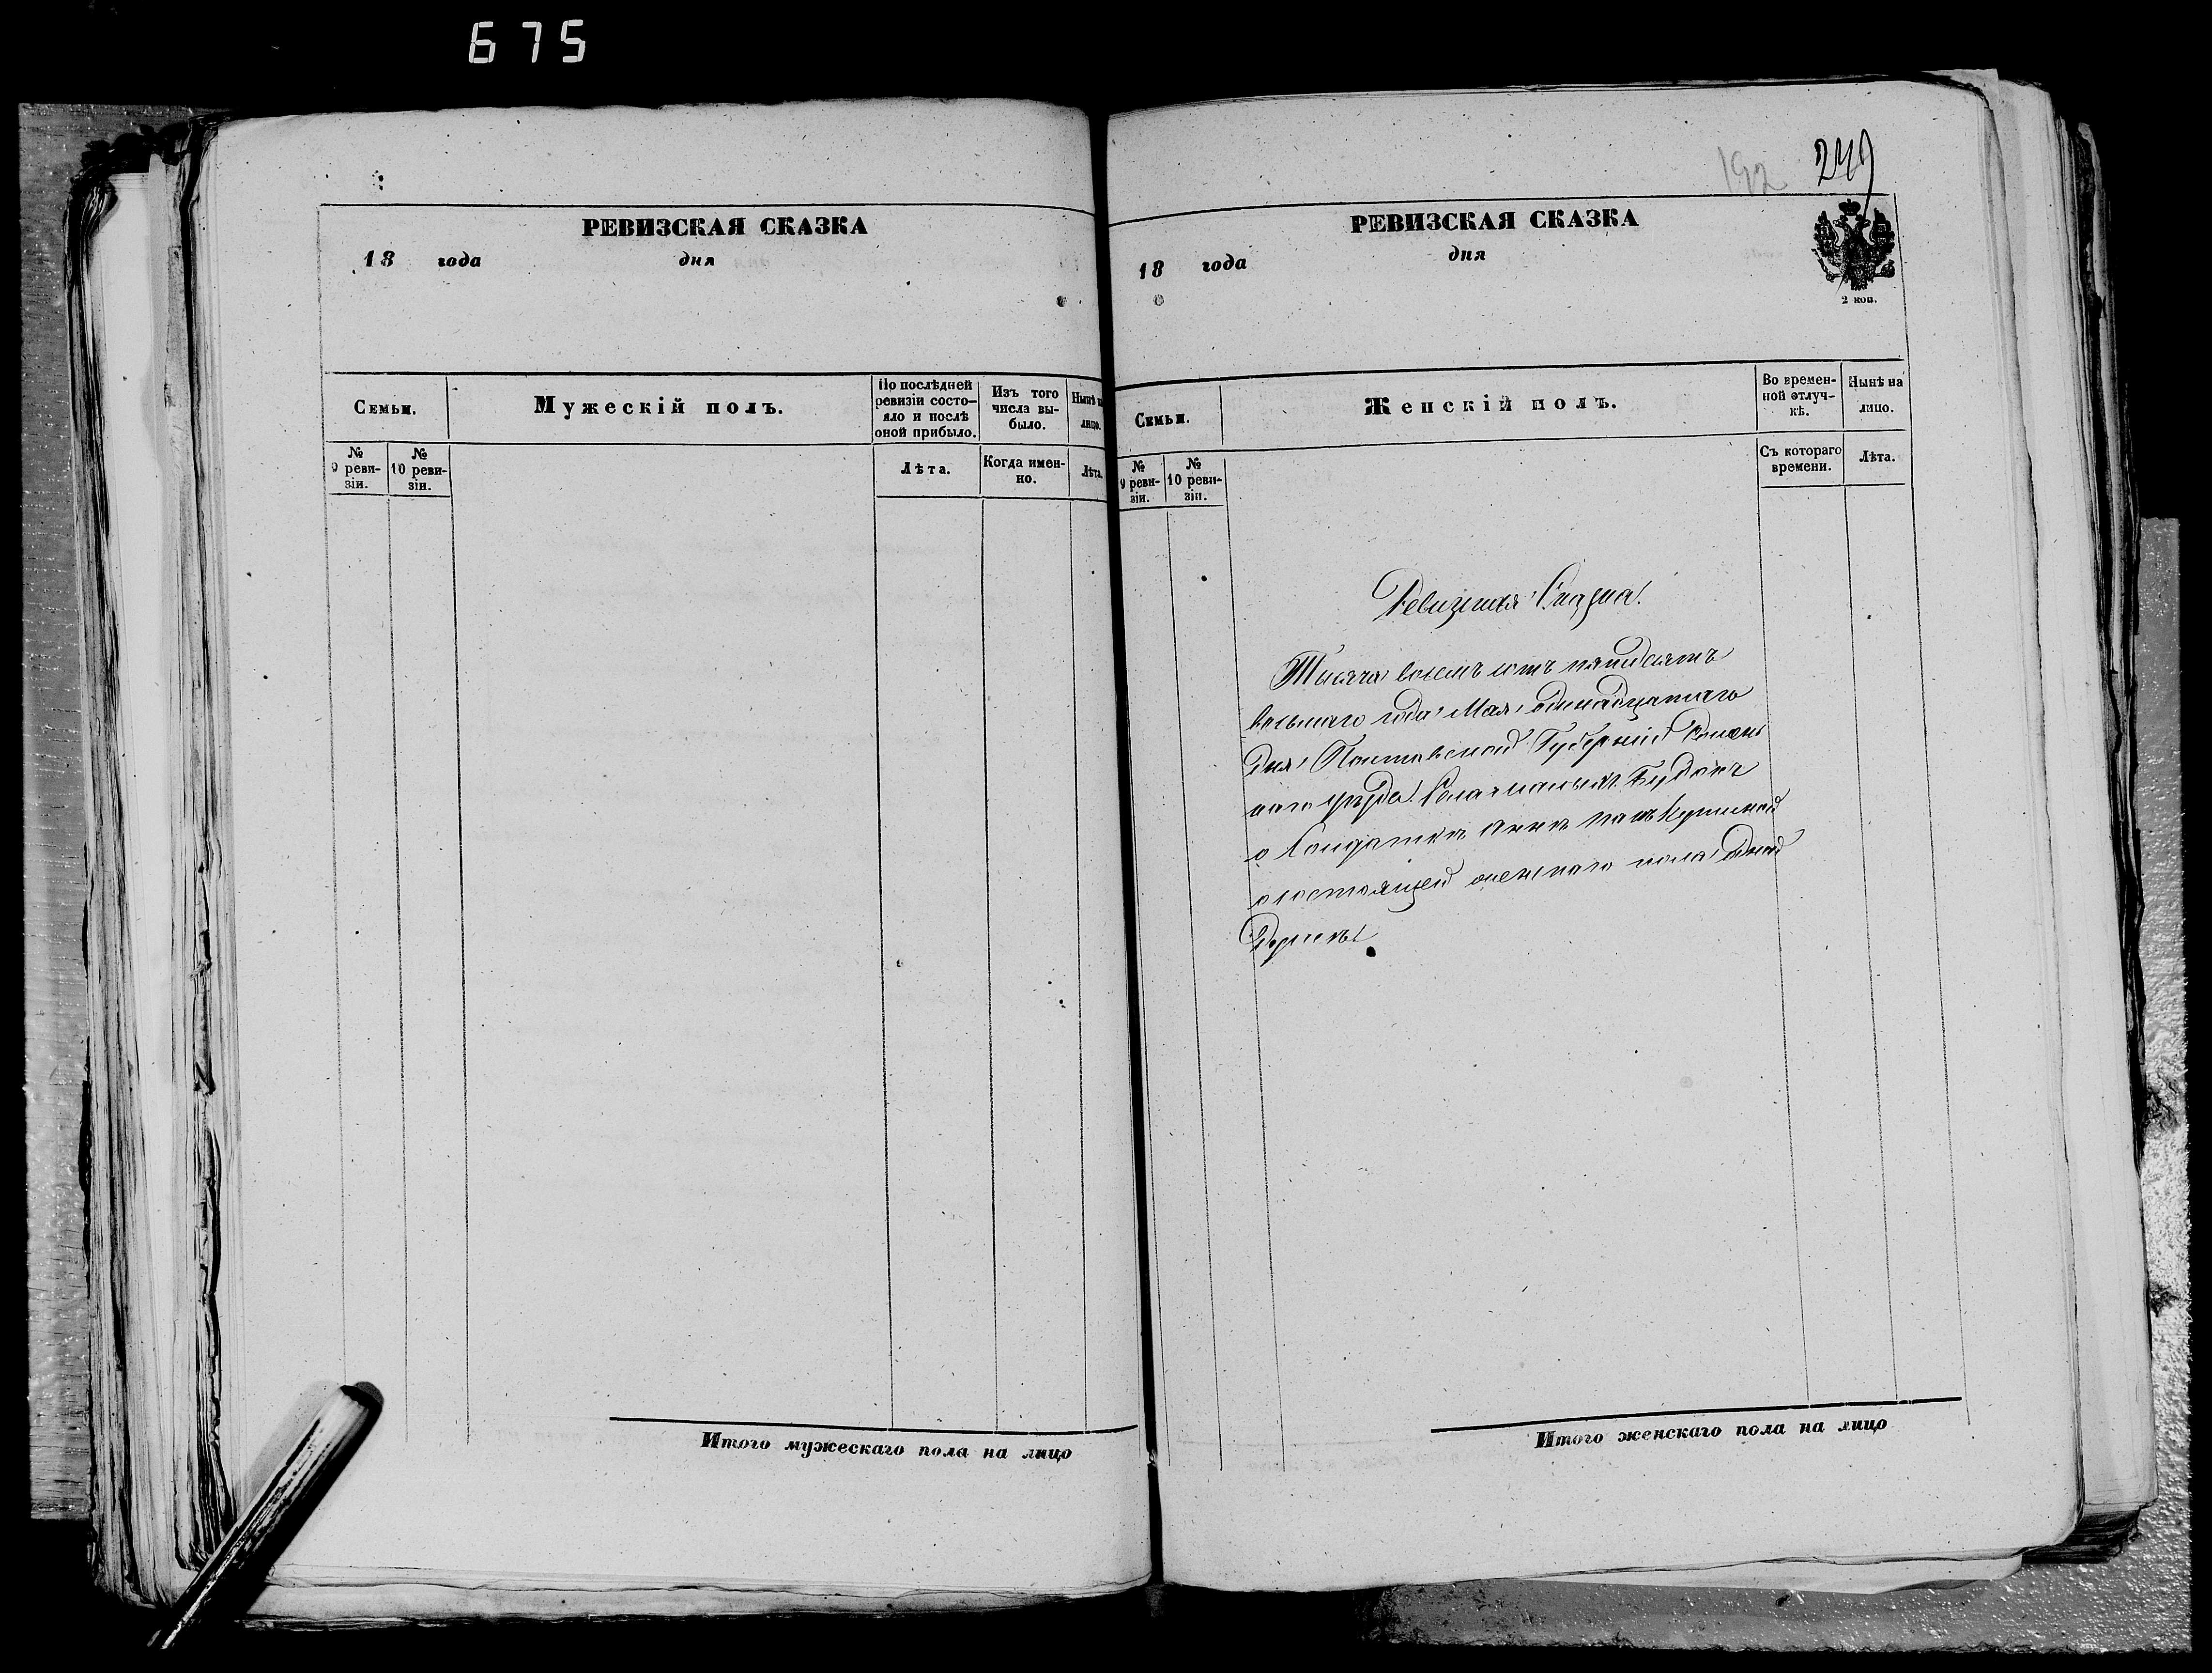 675
РЕВИЗСКАЯ СКАЗКА
18 года дня
Семьи.
Мужескій полъ.
По послѣдней ревизіи состо-
яло и послѣ
оной прибыло.
Изъ того
числа вы-
было.
Нынѣ на
лицо.
№
9 реви-
зіи.
№
10 реви-
зіи.
Лѣта.
Когда имен-
но.
Лѣта.
Итого мужескаго пола на лицо
192 249
РЕВИЗСКАЯ СКАЗКА
18 года дня
2 коп.
Семьи.
Женскій полъ.
Во времен-
ной отлуч-
кѣ.
Нынѣ на
лицо.
№
9 реви-
зіи.
№
10 реви-
зіи.
Съ котораго
времени.
Лѣта.
Ревизская Сказка.
Тысяча восемъ сотъ пятдесятъ
восьмаго года Мая одинадцатаго
дня Полтавской Губерніи Ромен
наго уѣзда
о Солдаткѣ Аннѣ
состоящей женскаго пола одной
Души
Итого женскаго пола на лицо